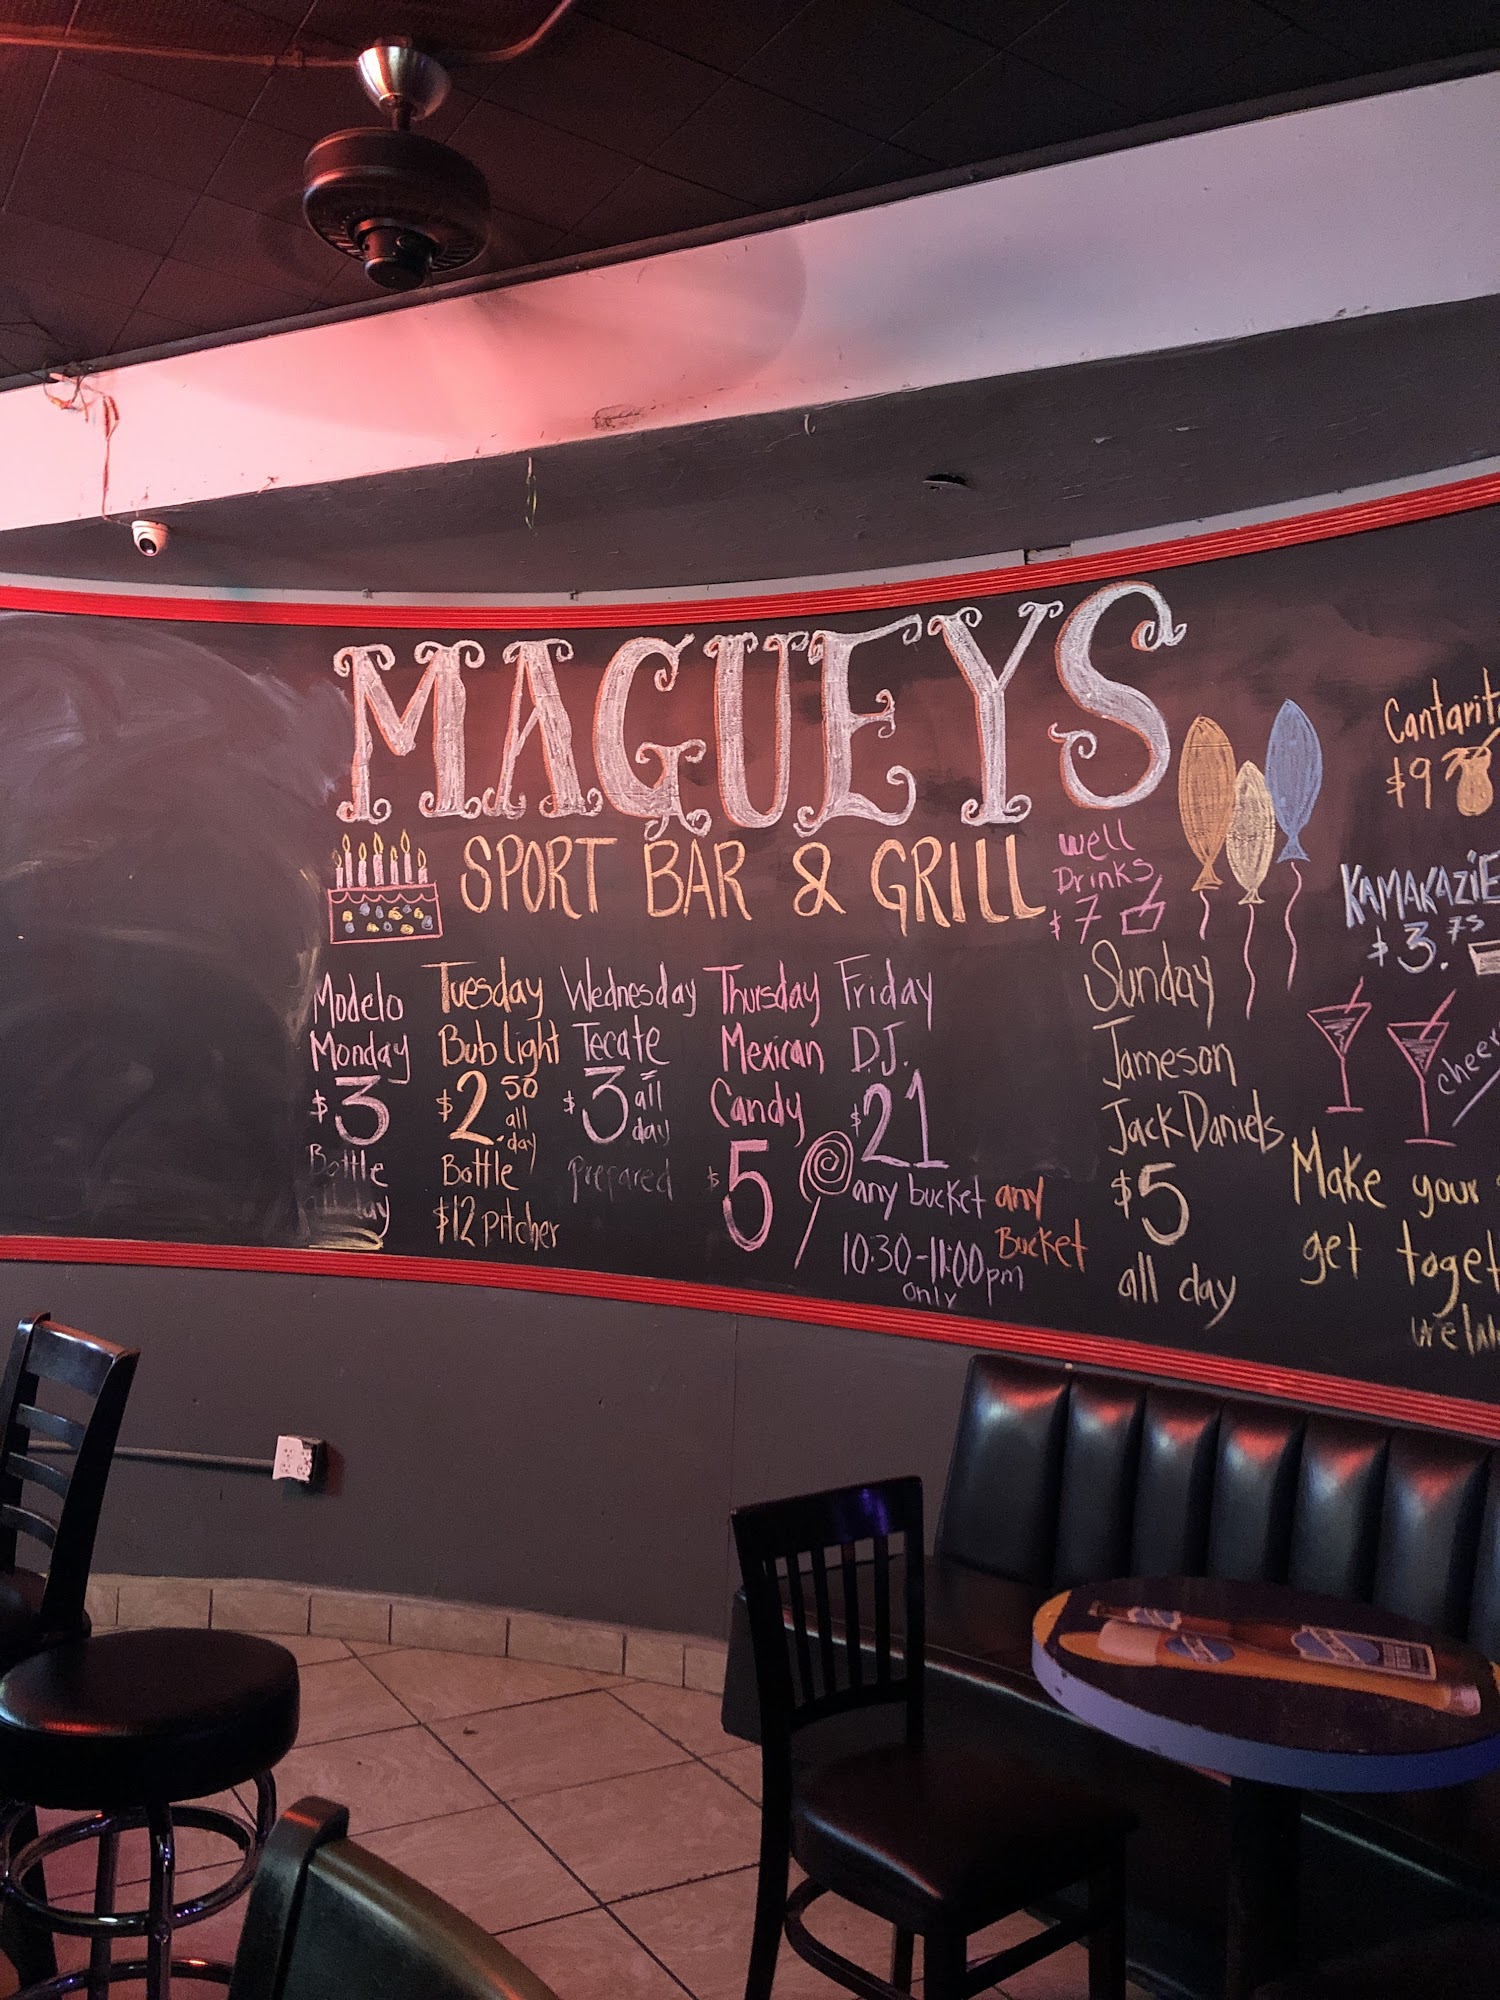 MAGUEYS
SPORT BAR & GRILL
Well
Drinks
$7
Modelo
Monday
$3
Bottle
all day
Tuesday
Bub light
$2.50
all
day
Bottle
$12 pitcher
Wednesday
Tecate
$3 all
day
prepared
Thursday
Mexican
Candy
$5
Friday
D.J.
$21
any bucket any
Bucket
10:30-11:00pm
only
Sunday
Jameson
Jack Daniels
$5
all day
$9
KAMAKAZIE
$3.75
Make your
get